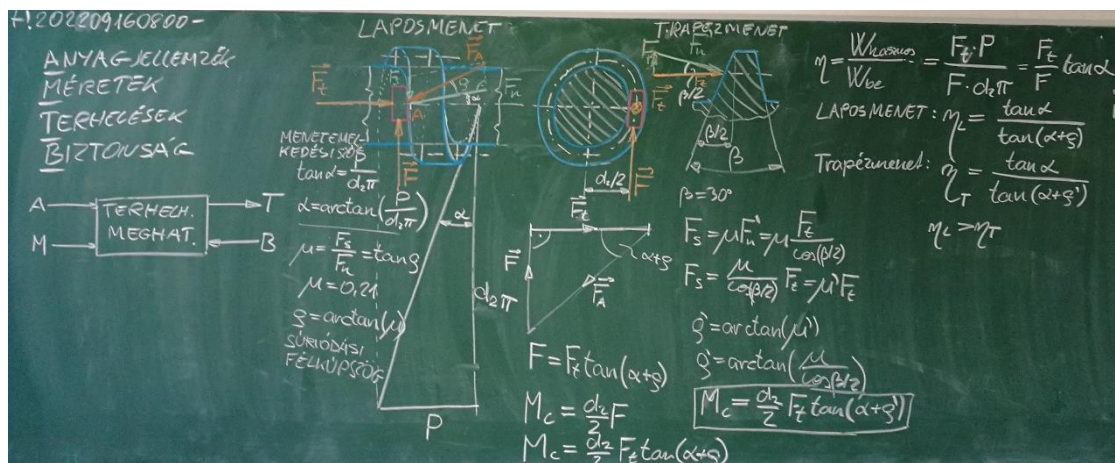 H.202209160800-
ANYAGJELLEMZŐK
MÉRETEK
TERHELÉSEK
BIZTONSÁG
A
M
TERHELH.
MEGHAT.
T
B
LAPOSMENET
F_A
F_t
F_n
ρ
α
A
F
MENETEMEL-
KEDÉSI SZÖG
tanα = P/d₂π
α = arctan(P/d₂π)
μ = F_s/F_n = tanρ
μ = 0,21
ρ = arctan(μ)
SÚRLÓDÁSI
FÉLKÚPSZÖG
α
d₂π
P
F_t
F
d₂/2
F_t
F
α+ρ
F_A
F = F_t tan(α+ρ)
M_c = d₂/2 F
M_c = d₂/2 F_t tan(α+ρ)
TRAPÉZMENET
F_n
F_t
β/2
β/2
β
β = 30°
F_s = μF_n' = μ F_t/cos(β/2)
F_s = μ/cos(β/2) F_t = μ'F_t
ρ' = arctan(μ')
ρ' = arctan(μ/cos(β/2))
M_c = d₂/2 F_t tan(α+ρ')
η = W_hasznos/W_be = F_t·P/F·d₂π = F_t/F tanα
LAPOSMENET: η_L = tanα/tan(α+ρ)
Trapézmenet: η_T = tanα/tan(α+ρ')
η_L > η_T